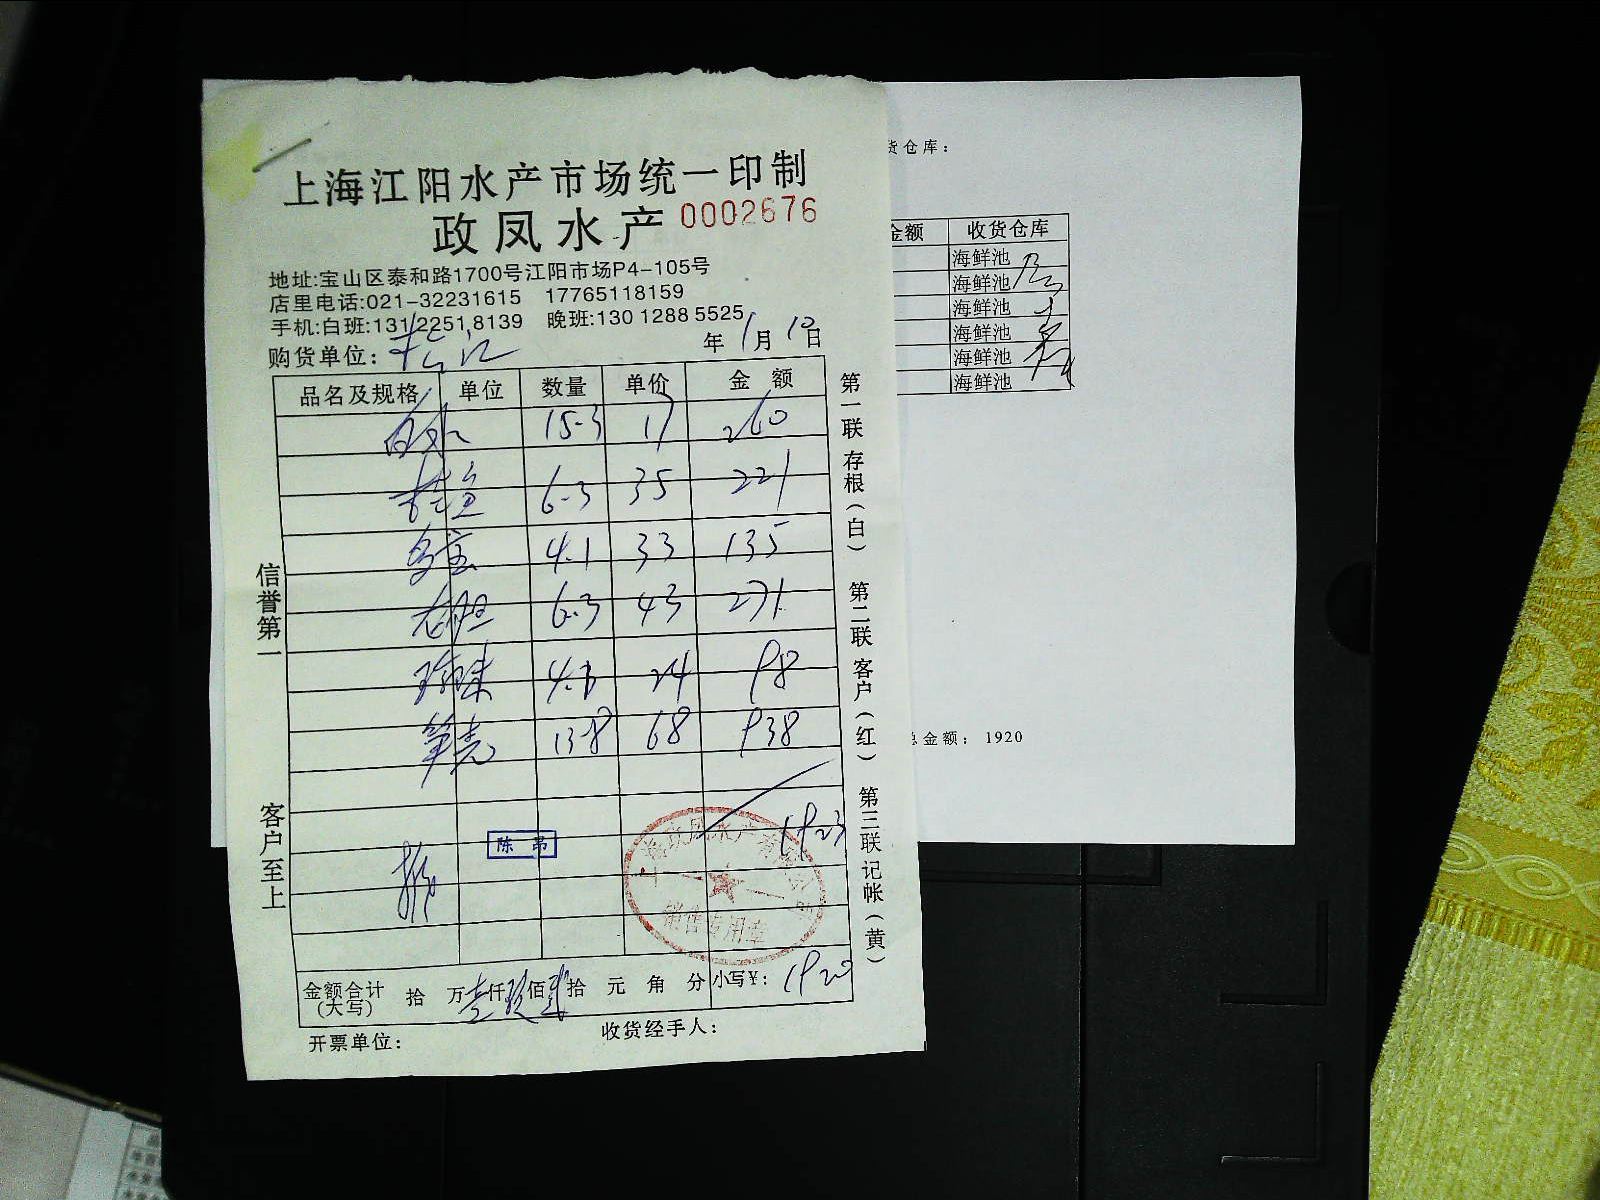 上海江阳水产市场统一印制
政凤水产 0002676
地址:宝山区泰和路1700号江阳市场P4-105号
店里电话:021-32231615 17765118159
手机:白班:131 2251 8139 晚班:130 1288 5525
购货单位: 年 1月 10日
品名及规格 单位 数量 单价 金额
白水 15.3 17 260
桂鱼 6.3 35 221
4.1 33 135
6.3 43 271
珍珠 4.1 24 98
笋壳 13.8 68 938
陈昂 1923
销售专用章
金额合计(大写) 拾 万壹仟玖佰贰拾 元 角 分 小写¥: 1920
开票单位: 收货经手人:
信誉第一
客户至上
第一联 存根(白) 第二联 客户(红) 第三联 记帐(黄)
货仓库:
金额 收货仓库
海鲜池
海鲜池
海鲜池
海鲜池
海鲜池
海鲜池
总金额: 1920